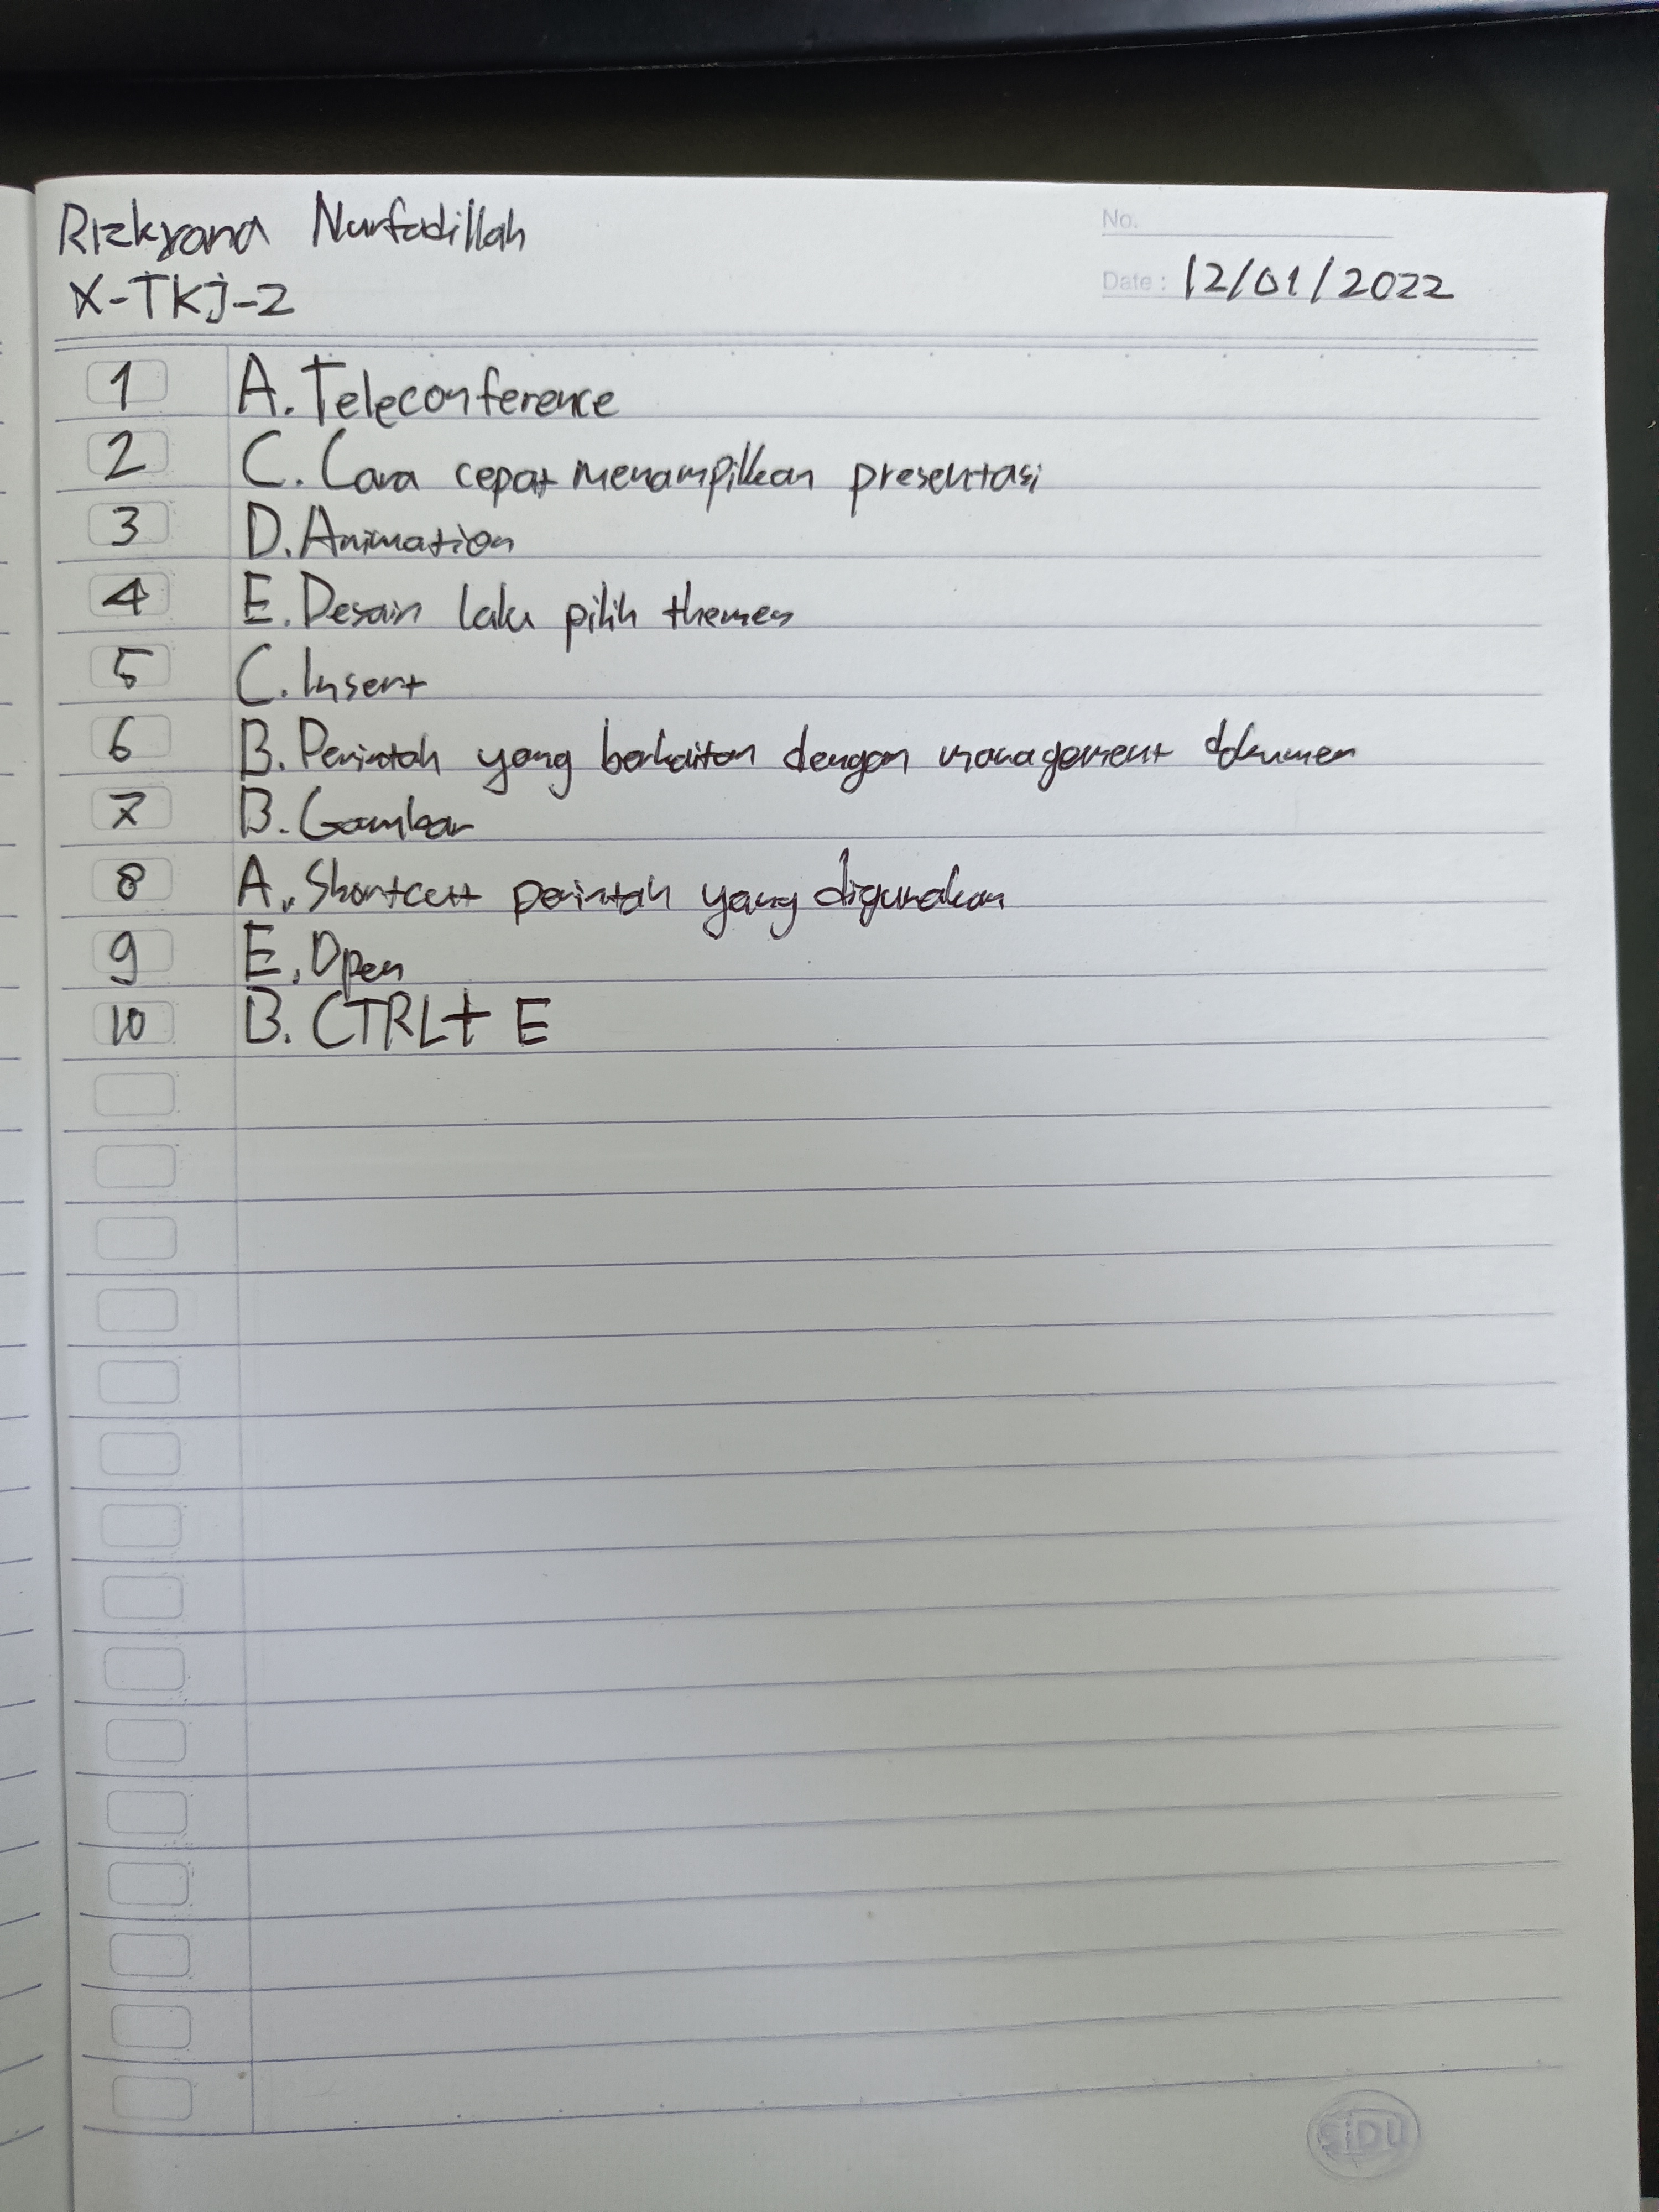 Rizkyana Nurfadillah
No.
X-TKJ-2
Date : 12/01/2022
1 A. Teleconference
2 C. Cara cepat menampilkan presentasi
3 D. Animation
4 E. Desain lalu pilih themes
5 C. Insert
6 B. Perintah yang berkaitan dengan management dokumen
7 B. Gambar
8 A. Shortcut perintah yang digunakan
9 E. Open
10 B. CTRL+ E
SiDU